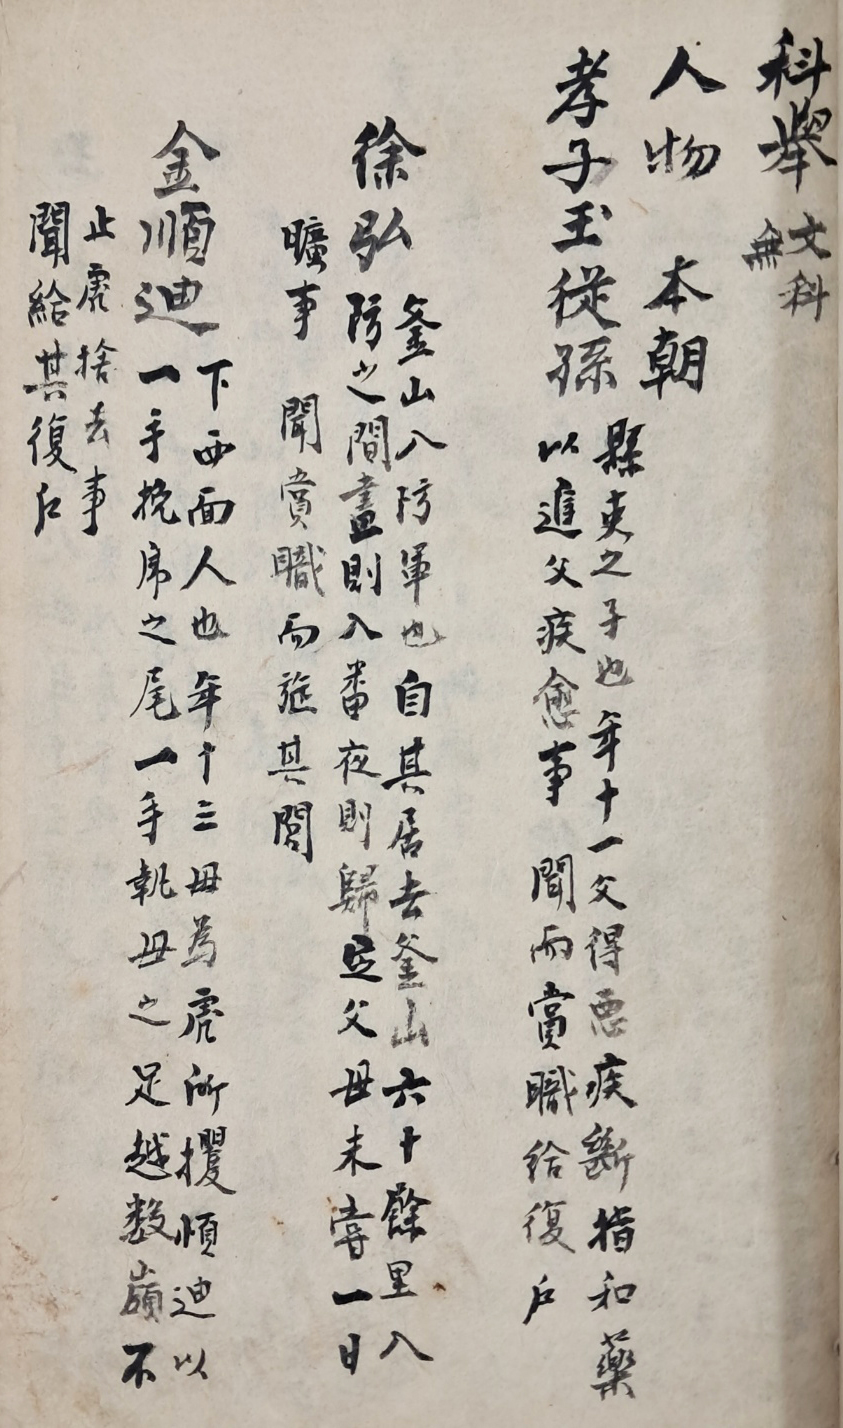 科擧 文科
無
人物 本朝
孝子玉從孫 縣吏之子也年十一父得惡疾斷指和藥
以進父疾愈事 聞而賞職給復戶
徐弘 釜山入防軍也自其居去釜山六十餘里入
防之間晝則入番夜則歸定父母未嘗一日
曠事 聞賞職而旌其閭
金順迪 下西面人也年十三母爲虎所攫順迪以
一手挽虎之尾一手執母之足越數嶺不
止虎捨去事
聞給其復戶